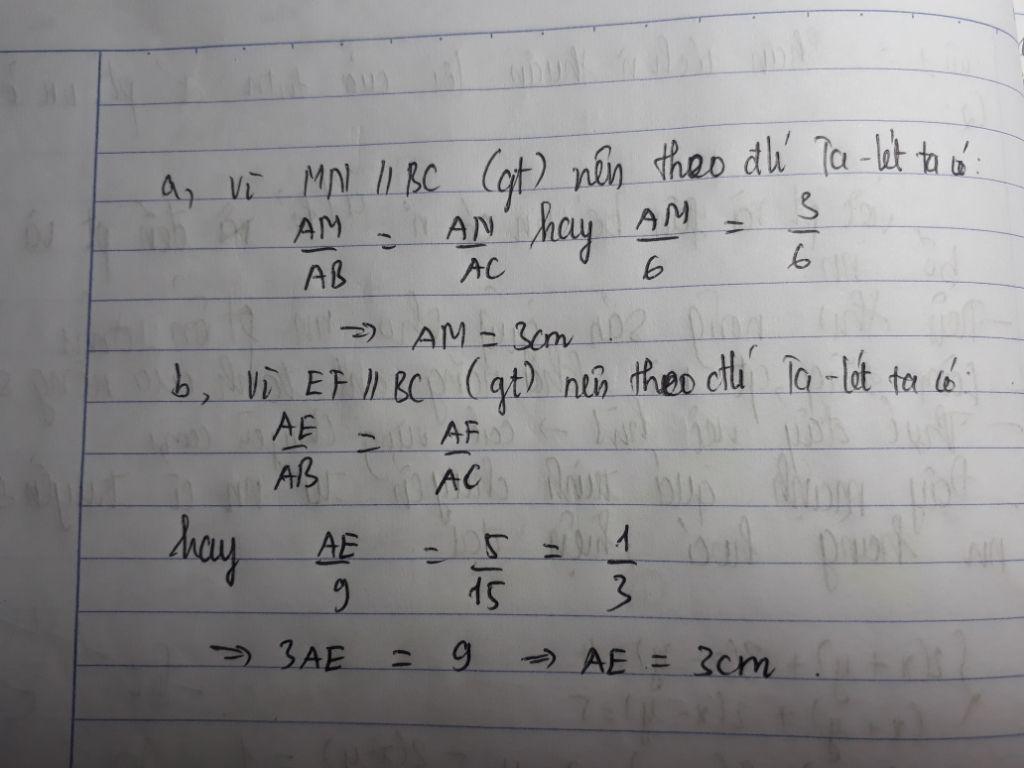 a, Vì MN // BC (gt) nên theo đlí Ta-lét ta có:
AM/AB = AN/AC hay AM/6 = 3/6
=> AM = 3cm
b, Vì EF // BC (gt) nên theo đlí Ta-lét ta có:
AE/AB = AF/AC
hay AE/9 = 5/15 = 1/3
=> 3AE = 9 => AE = 3cm.